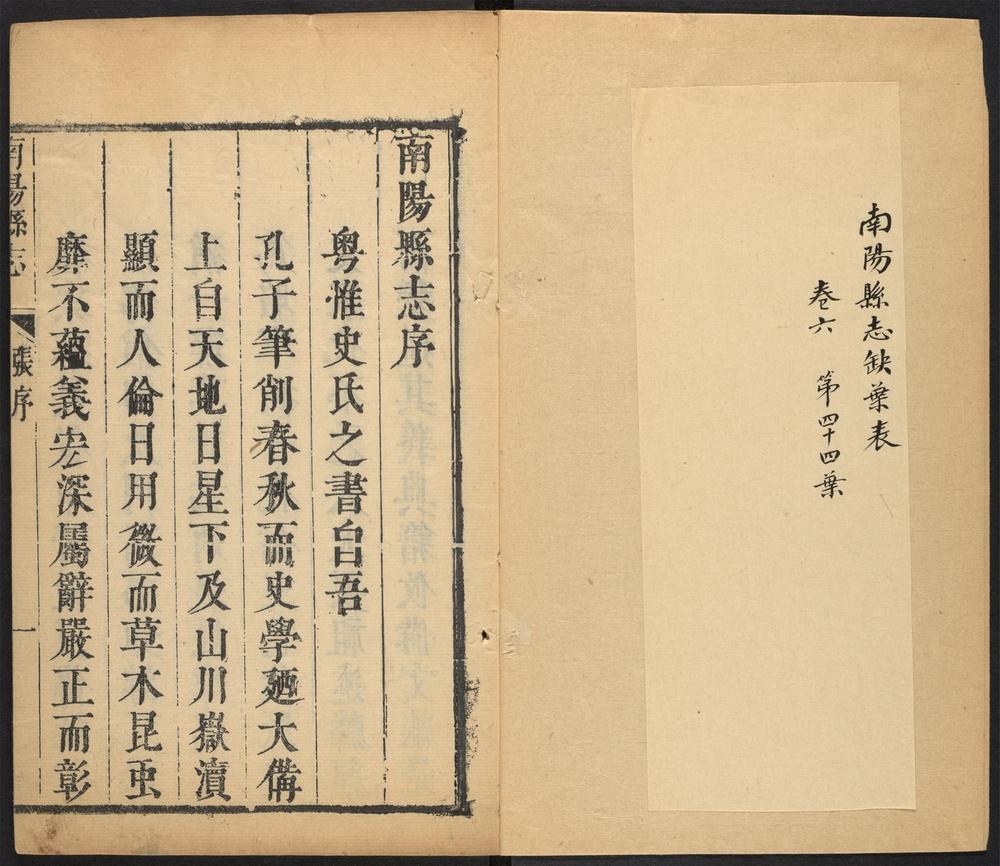 南陽縣志缺葉表
卷六 第四十四葉
南陽縣志序
粤惟史氏之書自吾
孔子筆削春秋而史學廼大備
上自天地日星下及山川嶽瀆
顯而人倫日用微而草木昆虫
靡不蘊義宏深屬辭嚴正而彰
南陽縣志 張序 一